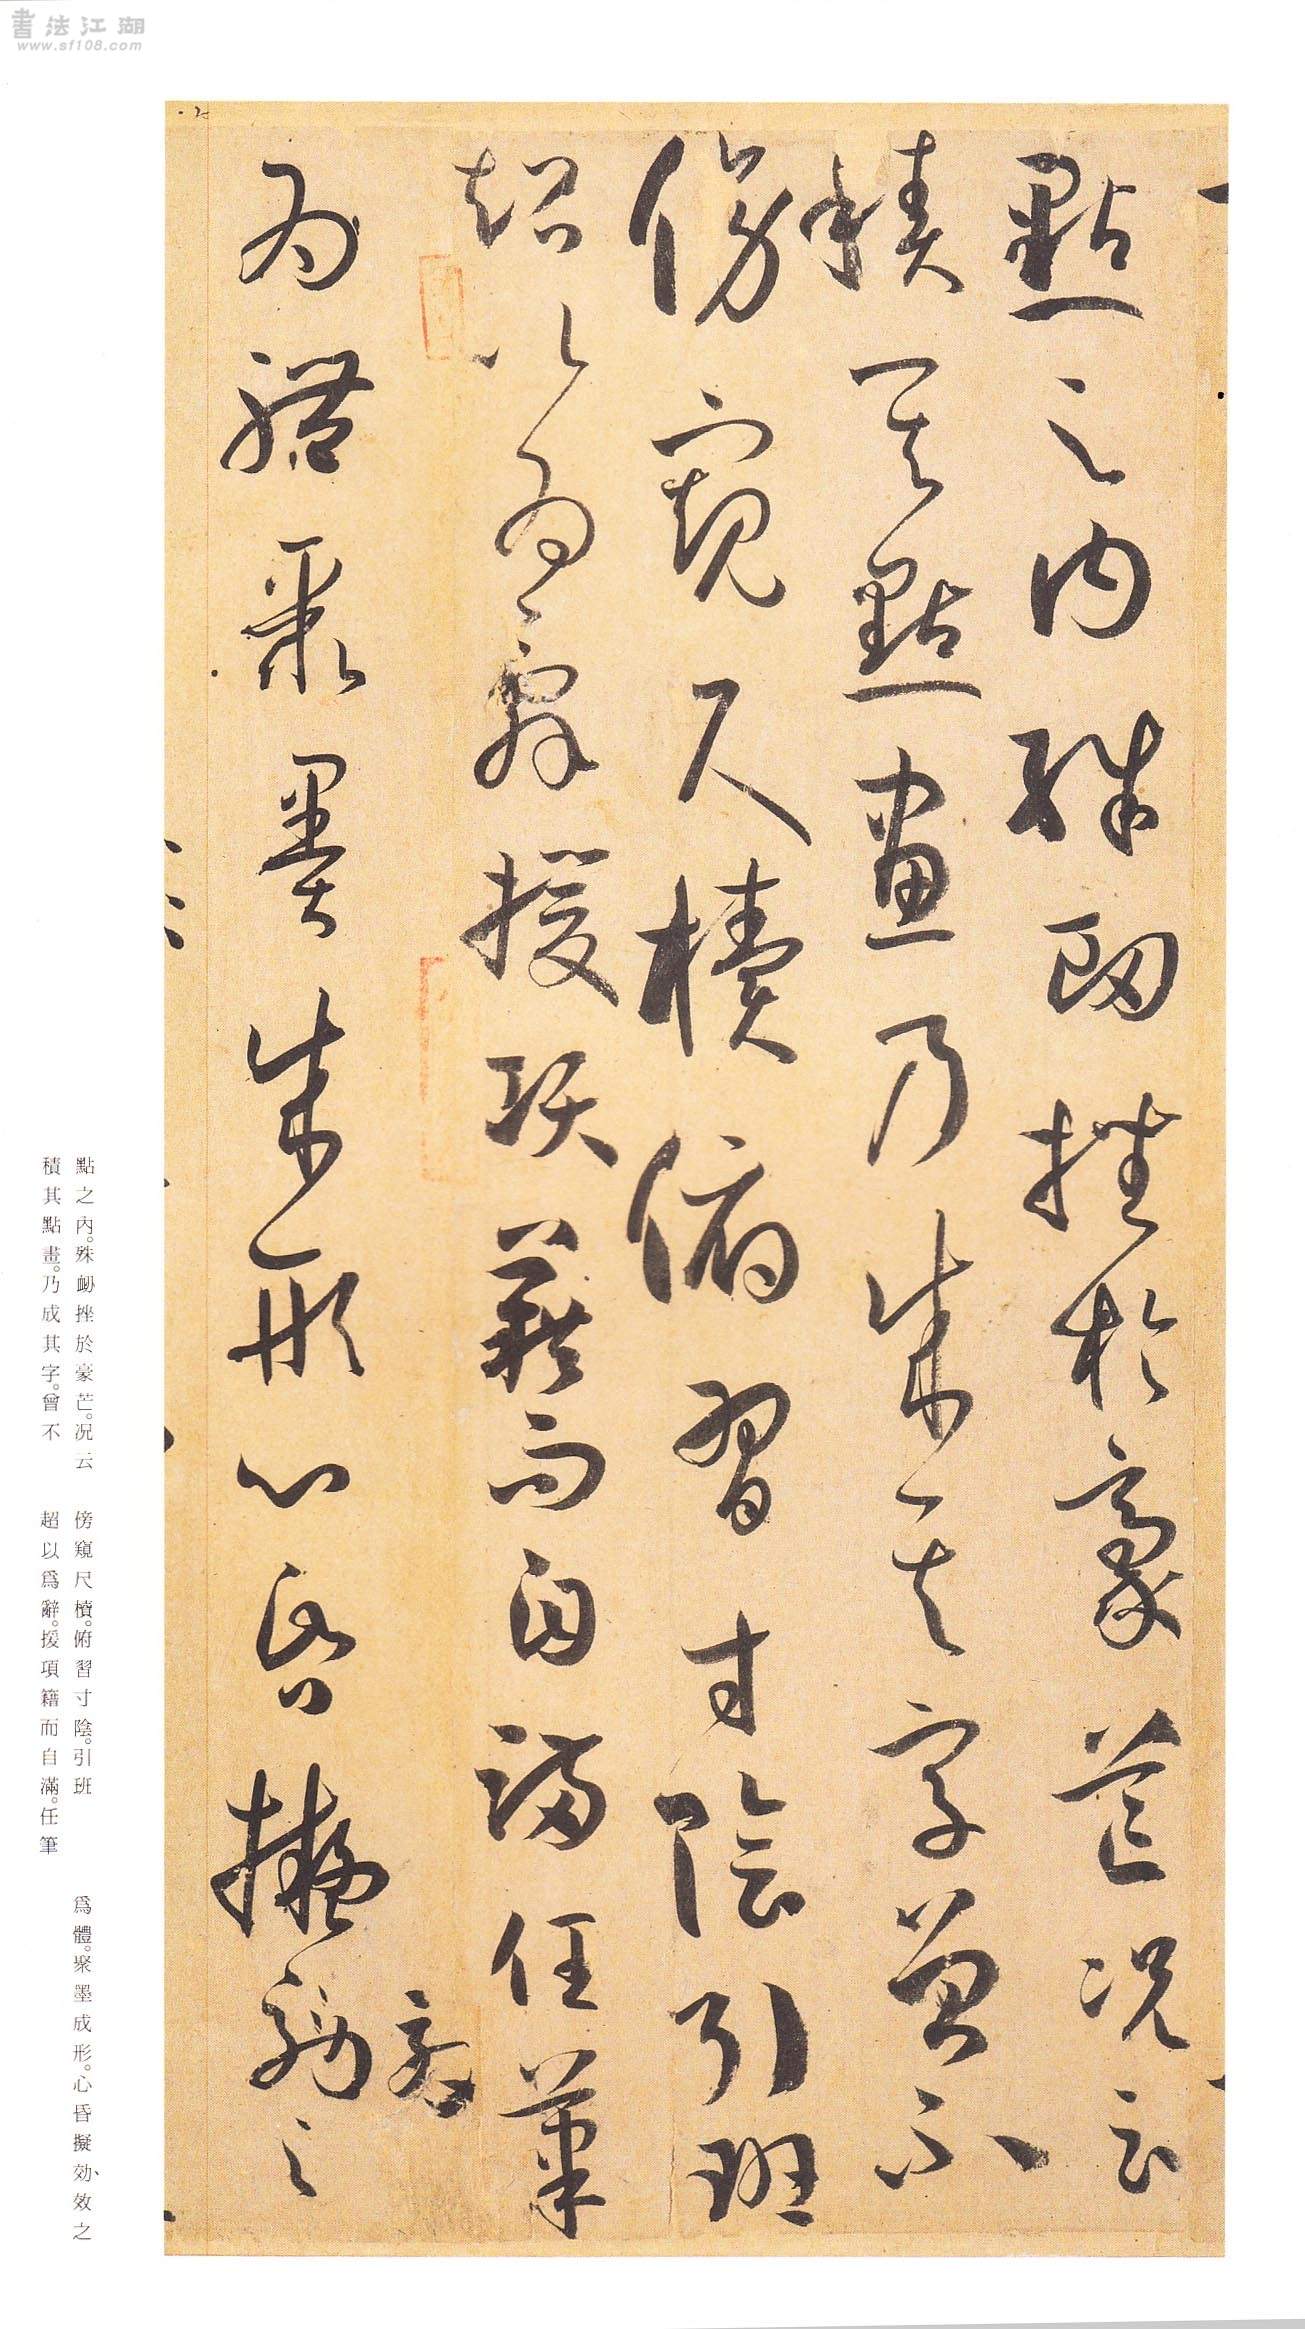 書法江湖
www.sf108.com
點之內殊衂挫於豪芒況云
積其點畫乃成其字曾不
傍窺尺櫝俯習寸陰引班
超以為辭援項籍而自滿任筆
為體聚墨成形心昏擬効
效
之
點之內。殊衂挫於豪芒。況云
積其點畫。乃成其字。曾不
傍窺尺櫝。俯習寸陰。引班
超以爲辭。援項籍而自滿。任筆
爲體。聚墨成形。心昏擬効、效之